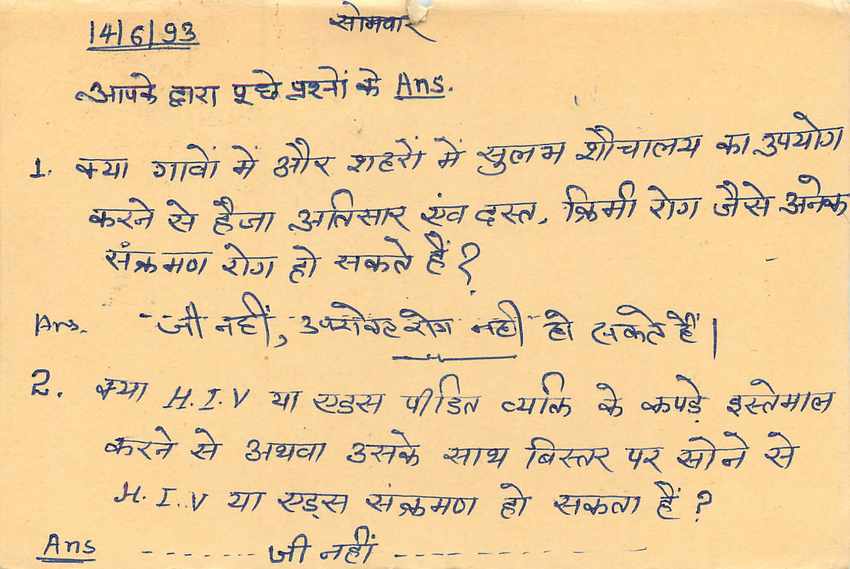 14/6/93 सोमवार
आपके द्वारा पूछे प्रश्नों के Ans.
1. क्या गावों में और शहरों में सुलभ शौचालय का उपयोग
करने से हैजा अतिसार एंव दस्त, क्रिमी रोग जैसे अनेक
संक्रमण रोग हो सकते हैं?
Ans. जी नहीं, उपरोक्त रोग नही हो सकते हैं।
2. क्या H.I.V या एडस पीडित व्यक्ति के कपड़े इस्तेमाल
करने से अथवा उसके साथ बिस्तर पर सोने से
H.I.V या एड्स संक्रमण हो सकता हैं?
Ans ------ जी नहीं -----------